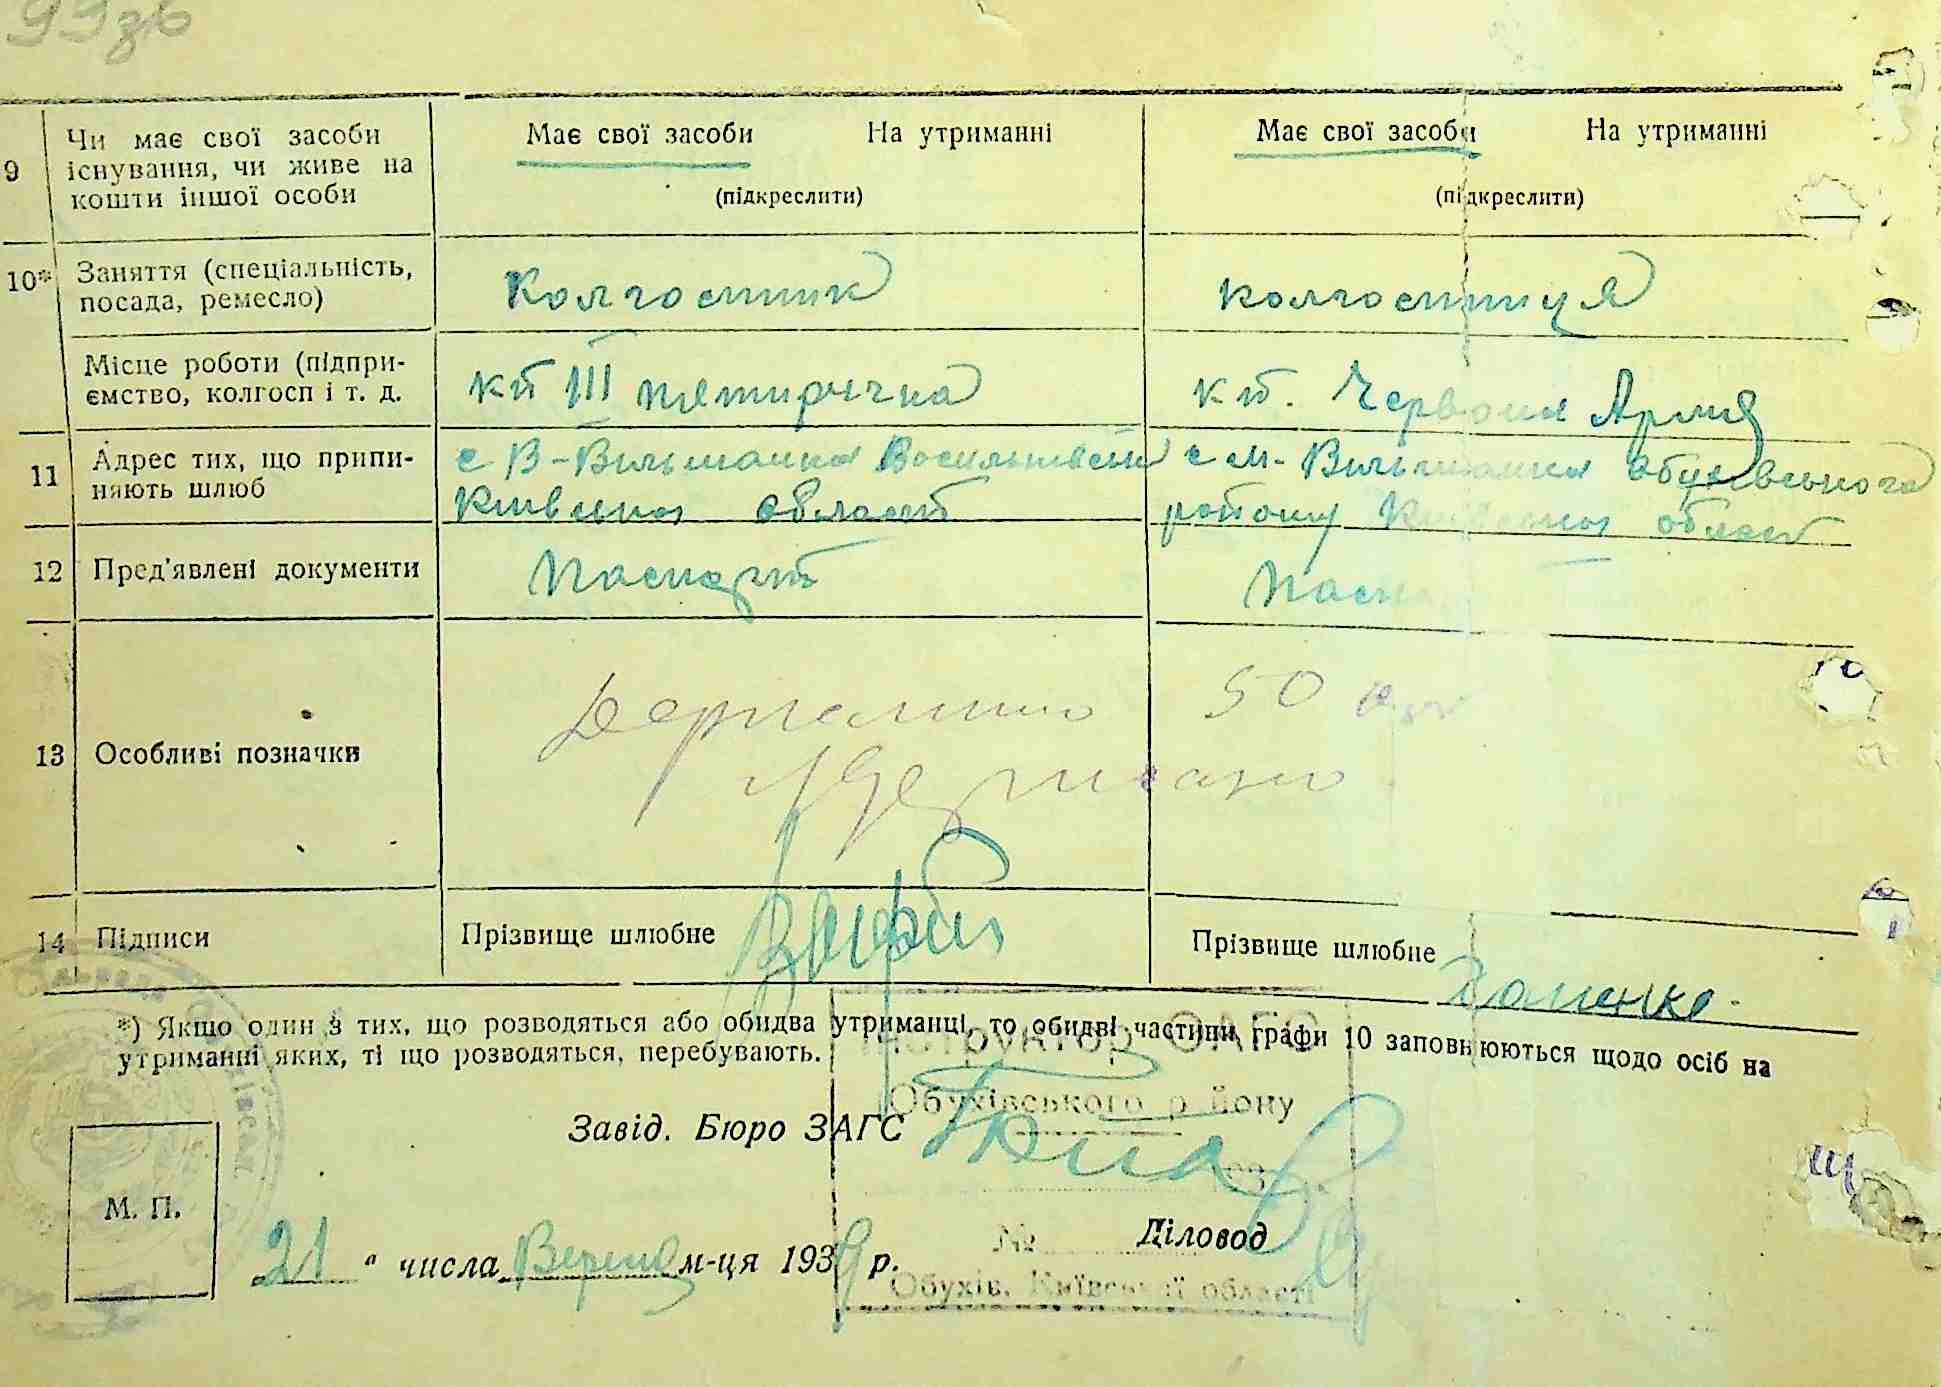 99зв
9 Чи має свої засоби існування, чи живе на кошти іншої особи
Має свої засоби На утриманні
(підкреслити)
Має свої засоби На утриманні
(підкреслити)
10* Заняття (спеціальність, посада, ремесло)
Колгоспник
колгоспниця
Місце роботи (підпри-
ємство, колгосп і т. д.
кп III пятирічка
кп. Червона Армія
11 Адрес тих, що припи-
няють шлюб
с В-Вільшанка Васильківськ
Київська област
с М-Вільшанка Обухівського
району Київська област
12 Пред'явлені документи
Паспорт
Пасп
13 Особливі позначки
50
14 Підписи
Прізвище шлюбне
Прізвище шлюбне
*) Якщо один з тих, що розводяться або обидва утриманці, то обидві частини графи 10 заповнюються щодо осіб на
утриманні яких, ті що розводяться, перебувають.
Інструктор ОАГС
Обухівського району
193
№
Обухів, Київської області
Завід. Бюро ЗАГС
Діловод
М. П.
21 " числа Вересня м-ця 1939 р.